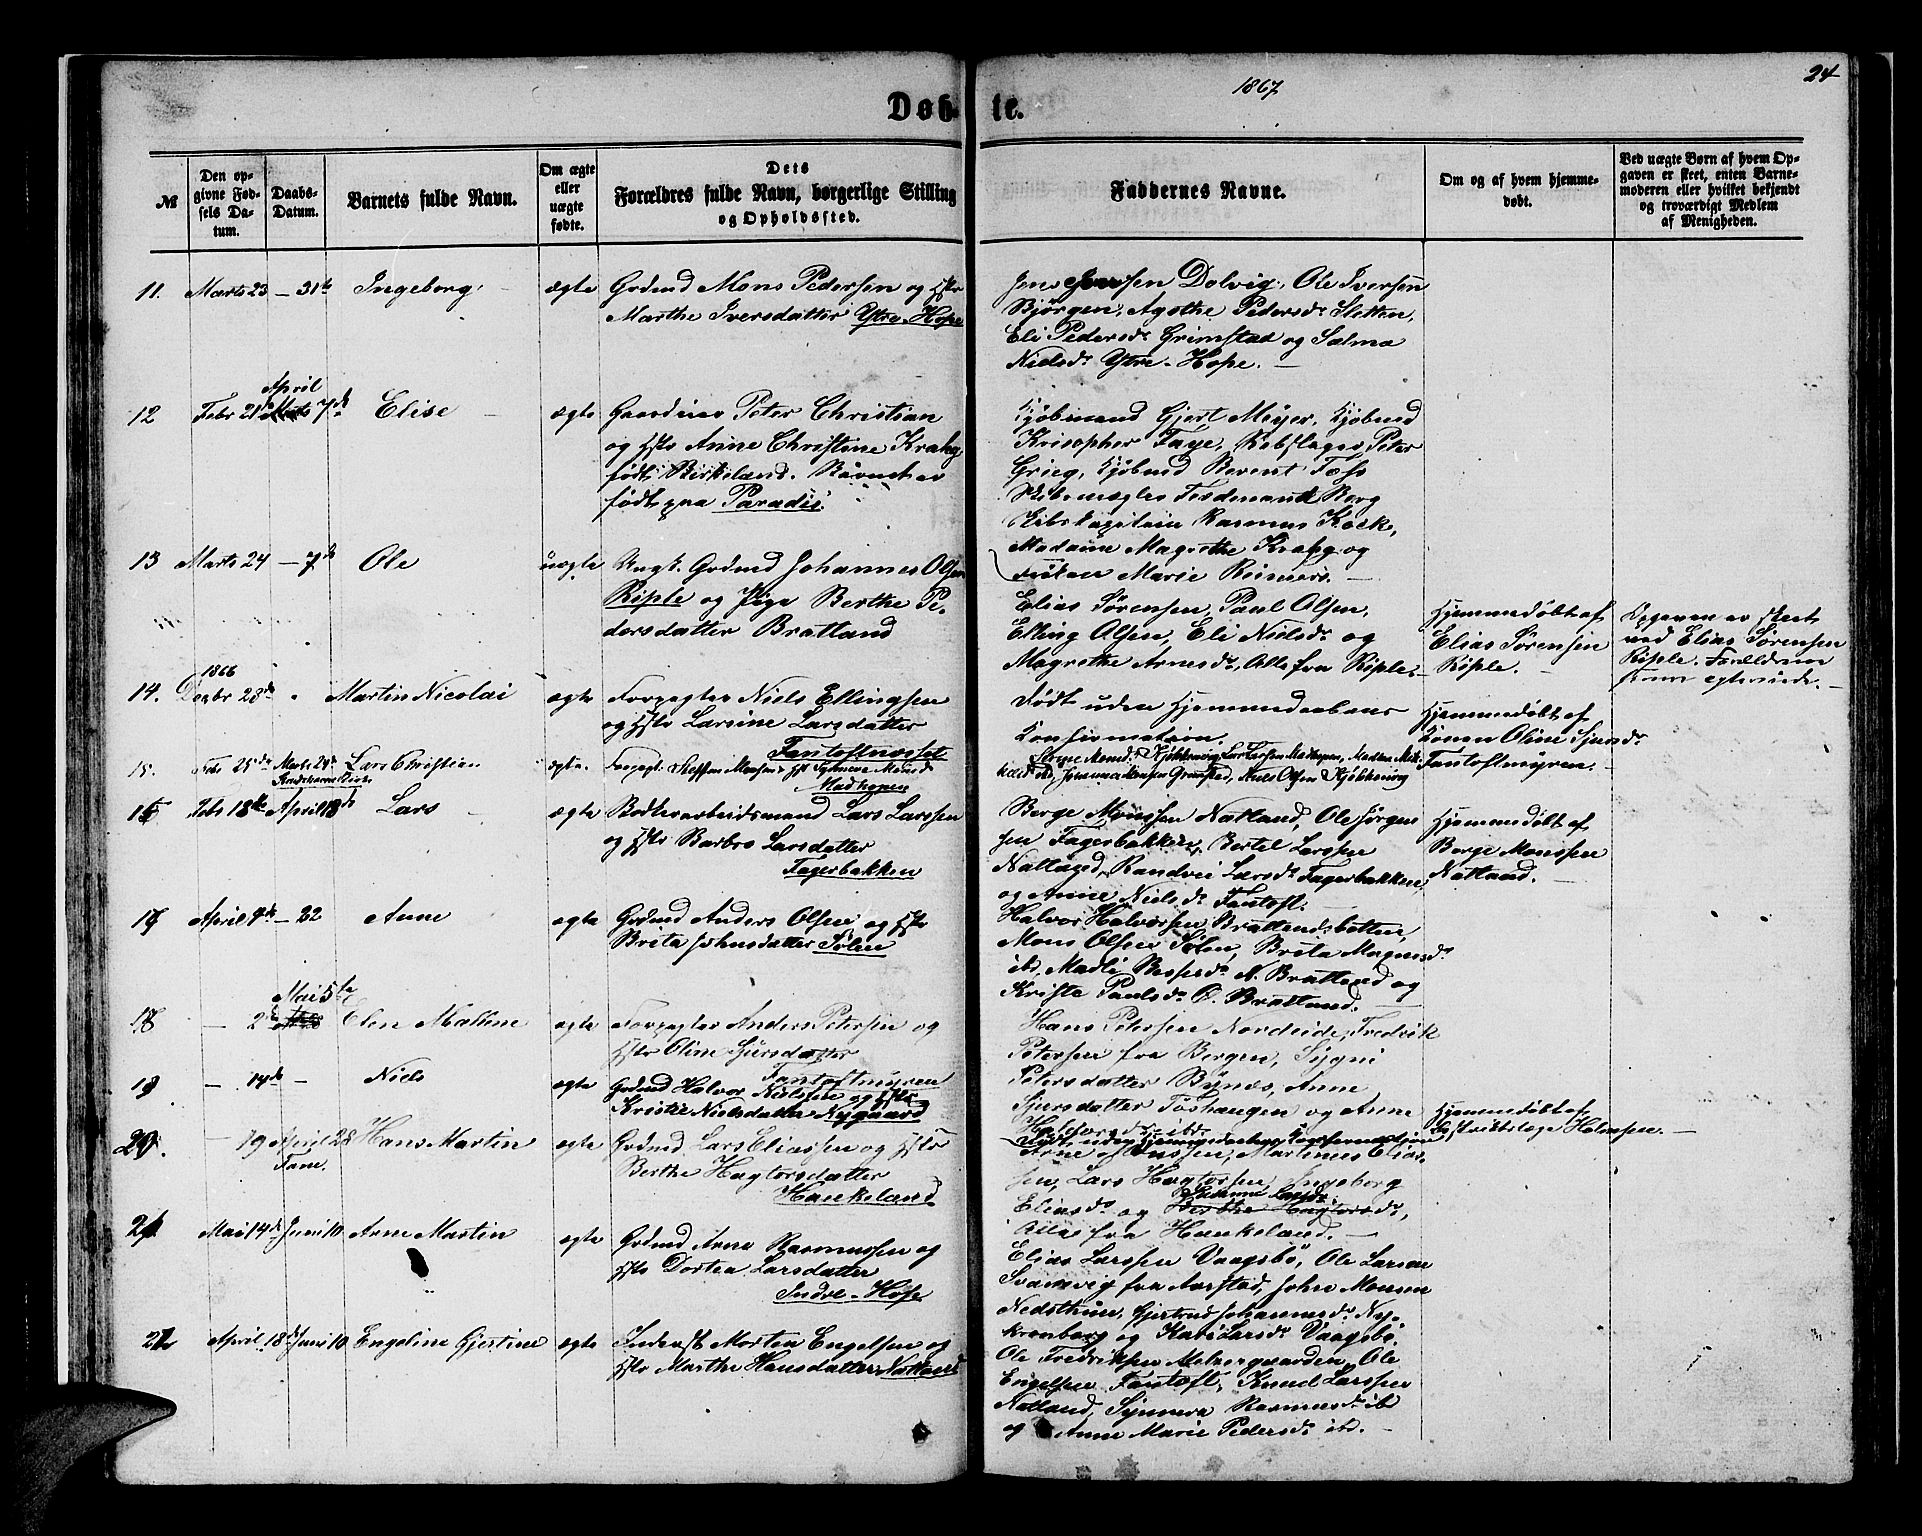 24
1867
Døb-
te.
№
Den op-
givne Fød-
sels Da-
tum.
Daabs-
Datum.
Barnets fulde Navn.
Om ægte
eller
uægte
fødte.
Dets
Forældres fulde Navn, borgerlige Stilling
og Opholdssted.
Faddernes Navne.
Om og af hvem hjemme-
døbt.
Ved uægte Børn af hvem Op-
gaven er skeet, enten Barne-
moderen eller hvilket bekjendt
og troværdigt Medlem
af Menigheden.
11. Marts 23 — 31te Ingeborg ægte Grdmd Mons Pedersen og Hstr
Marthe Iversdatter Ytre-Hope
Jens Jensen Dolvig, Ole Iversen
Bjørgen, Agathe Pedersdr Sletten,
Eli Pedersdr Grimstad og Salmo
Nielsdr Ytre-Hope.
12 Febr 21de April 7de Elise ægte Peter Christian
og Hstr Anne Christine Krahg
født Birkeland. Barnet er
født paa Paradis.
Kjøbmand Gjert Meyer, Kjøbmd
Krisopher Faye, Rebslager Peter
Grieg, Kjøbmd Berent
Ferdinand Berg
Skibskapitain Rasmus Kock,
Madame Magrethe Krahg og
Frøken Marie Reimers.
13 Marts 24 — 7de Ole uægte Ungk. Grdmd Johannes Olsen
Riple og Pige Berthe Pe-
dersdatter Bratland
Elias Sørensen, Paul Olsen,
Elling Olsen, Eli Nielsdr og
Magrethe Arnesdr, Alle fra Riple.
Hjemmedøbt af
Elias Sørensen
Riple.
Opgaven er skeet
ved Elias Sørensen
Riple. Forældrene
1866
14. Decbr 28de Martin Nicolai ægte Forpagter Niels Ellingsen
og Hstr Larsine Larsdatter
Fantoftnesset
Født uden Hjemmedaabens
Konfirmation.
Hjemmedøbt af
Konen Oline Sjursdr
Fantoftmyren.
15. Febr 25de Marts 24de Lars Christian ægte. Forpagt. Steffen Monsen
Madhopen
16 Febr 18de April 18de Lars ægte Bødkerarbeidsmand Lars Larssen
og Hstr Barbro Larsdatter
Fagerbakken
Børge Monssen Natland, Ole Jørgen
sen Fagerbakken, Bertel Larssen
Natland, Randvei Larsdr Fagerbakken,
og Anne Nielsdr Fantoft.
Hjemmedøbt af
Børge Monssen
Natland.
17 April 7de — 22 Anne ægte Grdmd Anders Olsen og Hstr
Brita Johnsdatter Sølen
Halvor Halvorsen Bratlandsbotten,
Mons Olsen Sølen, Brita Magnesdr
ibd, Madli N. Bratland og
Kriste Paulsdr Ø. Bratland.
18 — 2de Mai 5te Elen Malene ægte Forpagter Anders Petersen og
Hstr Oline Sjursdatter
Fantoftmyren
Hans Petersen Nordeide, Fredrik
Petersen fra Bergen, Signi
Petersdatter Bynes, Anne
Sjursdatter Toshaugen og Anne
Halvorsdr ibd.
19 — 14de — Niels ægte Grdmd Halvor Nielsen og Hstr
Kristie Nielsdatter Nygaard
Hjemmedøbt af
Distriktslæge Holmsen.
20. — 19 April 28 Hans Martin ægte Grdmd Lars Eliassen og Hstr
Fane.
Berthe Hagtorsdatter
Haukeland
Martines Elias-
sen, Lars Hagtorsen, Ingeborg
Eliasdr og Berthe Hagtorsdr,
Alle fra Haukeland.
21 Mai 14de Juni 10 Arne Martin ægte Grdmd Arne Rasmussen og
Hstr Dortea Larsdatter
Indre-Hope
Elias Larssen Vaagsbø, Ole Larsen
Svanevig fra Aarstad, John Monsen
Nedsthuun, Gjertrud Johannesdr Ny-
kronborg og Kari Larsdr Vaagsbø.
22 April 18de Juni 10 Engeline Gjertine ægte Inderst Morten Engelsen og
Hstr Marthe Hansdatter Natland
Ole Fredriksen Melkergaarden, Ole
Engelsen Fantoft, Knud Larssen
Natland, Synneva Rasmusdr ib
og Anne Marie Pedersdr ibd.